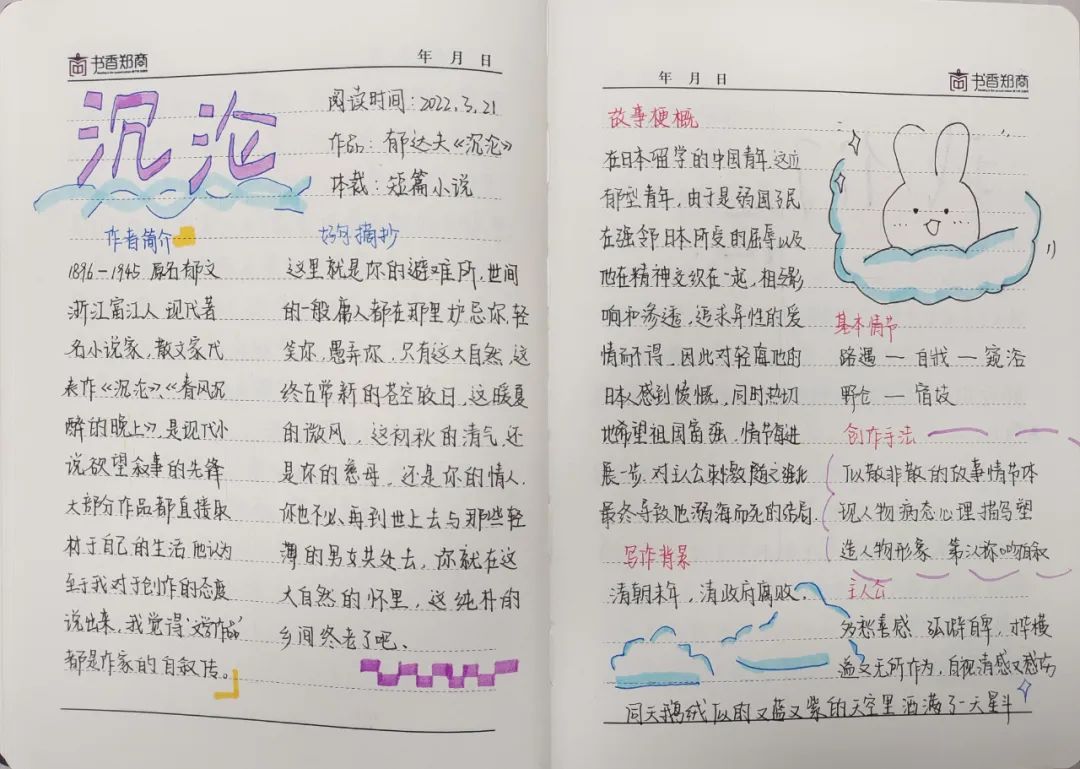 书香郑商
年 月 日
沉沦
阅读时间:2022.3.21
作品:郁达夫《沉沦》
体裁:短篇小说
作者简介
1896-1945 原名郁文
浙江富江人 现代著
名小说家,散文家代
表作《沉沦》、《春风沉
醉的晚上》,是现代小
说欲望叙事的先锋
大部分作品都直接取
材于自己的生活,他认为
至于我对于创作的态度
说出来,我觉得"文学作品"
都是作家的自叙传。
好句摘抄
这里就是你的避难所,世间
的一般庸人都在那里妒忌你,轻
笑你,愚弄你,只有这大自然,这
终古常新的苍空皎日,这暖夏
的微风,这初秋的清气,还
是你的慈母,还是你的情人.
你也不必再到世上去与那些轻
薄的男女共处去,你就在这
大自然的怀里,这纯朴的
乡间终老了吧、
年 月 日
书香郑商
故事梗概
在日本留学的中国青年,这位
郁型青年,由于是弱国子民
在强邻日本所受的屈辱以及
他在精神交织在一起,相互影
响和渗透,追求异性的爱
情而不得,因此对轻侮他的
日本人感到愤慨,同时热切
地希望祖国富强,情节每进
展一步,对主人公刺激随之强化
最终导致他溺海而死的结局.
写作背景
清朝末年,清政府腐败.
基本情节
路遇 — 自戕 — 窥浴
野合 — 宿妓
创作手法
似散非散的故事情节体
现人物病态心理,描写塑
造人物形象 第人称
主人公
多愁善感 自卑,
无所作为,自视清感又感伤
同天鹅绒似的又蓝又紫的天空里洒满了一天星斗